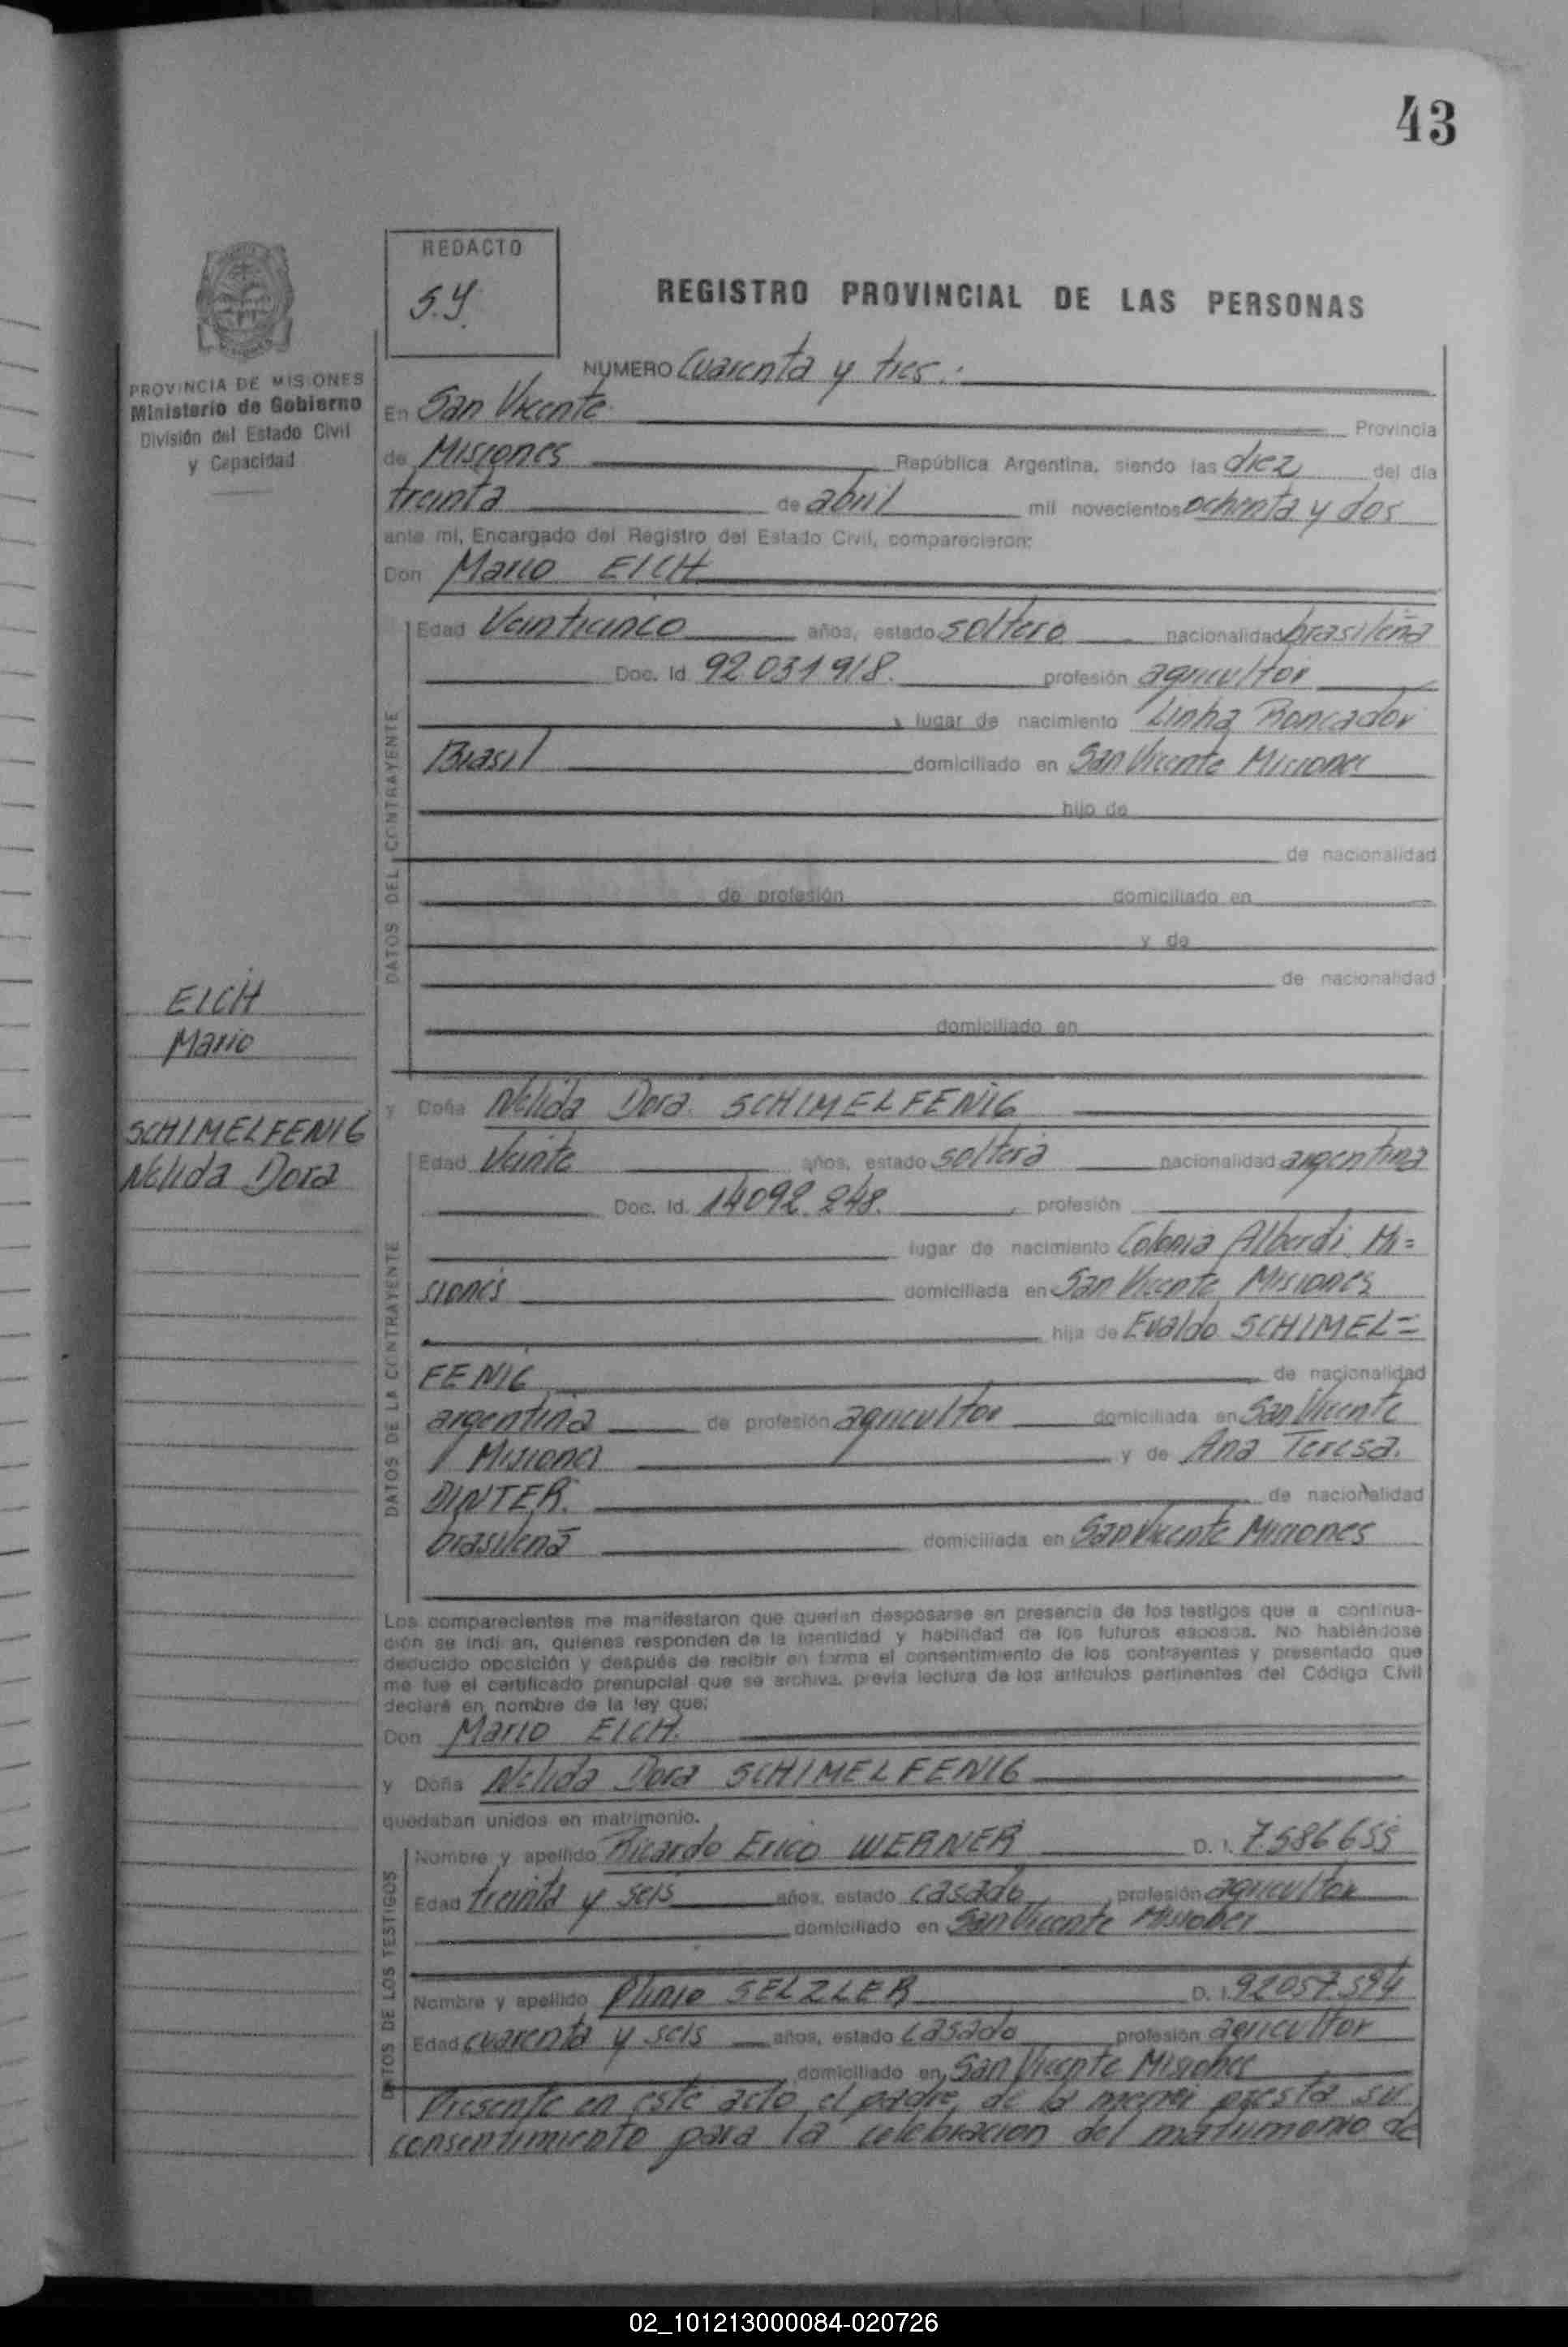 43
REDACTO
S.Y.
REGISTRO PROVINCIAL DE LAS PERSONAS
PROVINCIA DE MISIONES
Ministerio de Gobierno
División del Estado Civil
y Capacidad
NUMERO Cuarenta y tres.
En San Vicente Provincia
de Misiones República Argentina, siendo las diez del día
treinta de abril mil novecientos ochenta y dos
ante mí, Encargado del Registro del Estado Civil, comparecieron:
Don Mario EICH
DATOS DEL CONTRAYENTE
Edad Veinticinco años, estado soltero nacionalidad brasileña
Doc. Id. 92.031.918. profesión agricultor
lugar de nacimiento Linha Roncador
Brasil domiciliado en San Vicente Misiones
hijo de
de nacionalidad
de profesión domiciliado en
y de
de nacionalidad
domiciliado en
EICH
Mario
SCHIMELFENIG
Nelida Dora
y Doña Nelida Dora SCHIMELFENIG
DATOS DE LA CONTRAYENTE
Edad Veinte años, estado soltera nacionalidad argentina
Doc. Id. 14.092.248. profesión
lugar de nacimiento Colonia Alberdi Mi=
siones domiciliada en San Vicente Misiones
hija de Evaldo SCHIMEL=
FENIG de nacionalidad
argentina de profesión agricultor domiciliada en San Vicente
Misiones y de Ana Teresa.
DINTER. de nacionalidad
brasileña domiciliada en San Vicente Misiones
Los comparecientes me manifestaron que querían desposarse en presencia de los testigos que a continua-
ción se indi an, quienes responden de la identidad y habilidad de los futuros esposos. No habiéndose
deducido oposición y después de recibir en forma el consentimiento de los contrayentes y presentado que
me fue el certificado prenupcial que se archiva, previa lectura de los artículos pertinentes del Código Civil
declaré en nombre de la ley que:
Don Mario EICH.
y Doña Nelida Dora SCHIMELFENIG
quedaban unidos en matrimonio.
DATOS DE LOS TESTIGOS
Nombre y apellido Ricardo Erico WERNER D. I. 7.586.655
Edad treinta y seis años, estado casado profesión agricultor
domiciliado en San Vicente Misiones
Nombre y apellido Plinio SELZLER D. I. 92.057.594
Edad cuarenta y seis años, estado casado profesión agricultor
domiciliado en San Vicente Misiones
Presente en este acto el padre de la menor presta su
consentimiento para la celebracion del matrimonio de
02_101213000084-020726